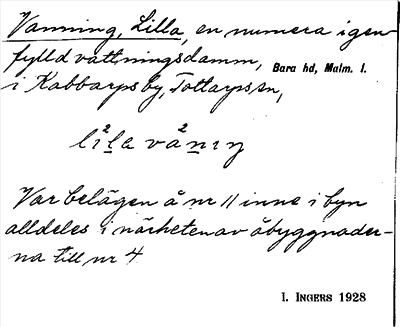 Vanning, Lilla, en numera igen-
fylld vattningsdamm, Bara hd, Malm. l.
i Kabbarps by, Tottarps sn,
lì²l̲a vá²n̲ıŋ
Var belägen å nr 11 inne i byn
alldeles i närheten av åbyggnader-
na till nr 4
I. INGERS 1928